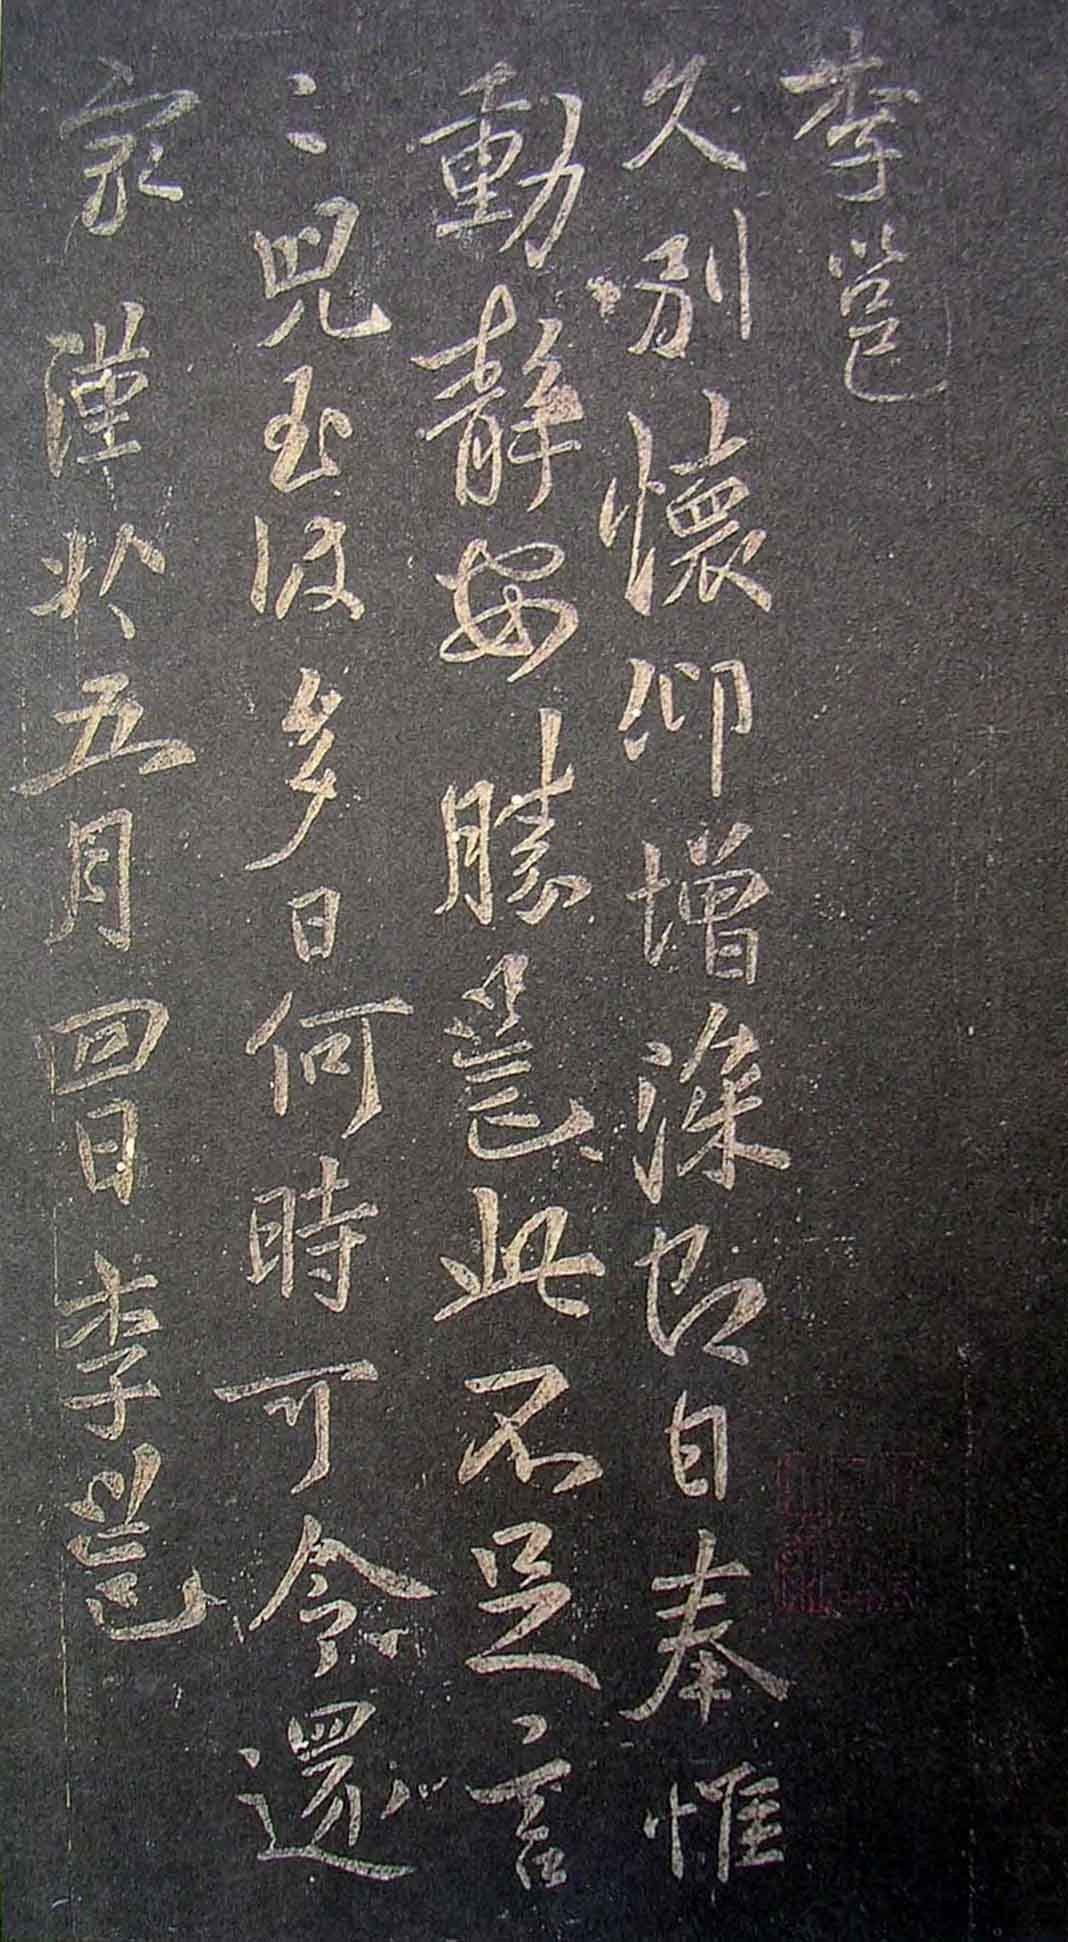 李邕
久別懷仰增深即日奉惟
動静安勝邕此不足言
二兒至彼多日何時可令還
家謹狀五月四日李邕